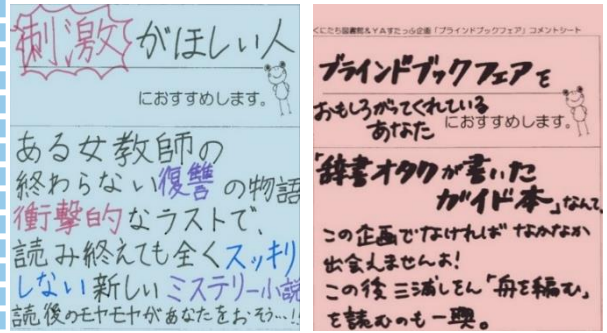 刺激がほしい人
におすすめします。
ある女教師の
終わらない復讐の物語
衝撃的なラストで、
読み終えても全くスッキリ
しない新しいミステリー小説
読後のモヤモヤがあなたをおそう…!!
くにたち図書館&YAすたっふ企画「ブラインドブックフェア」コメントシート
ブラインドブックフェアを
おもしろがってくれている
あなたにおすすめします。
「辞書オタクが書いた
ガイド本」なんて、
この企画でなければなかなか
出会えませんよ!
この後三浦しをん「舟を編む」
を読むのも一興。